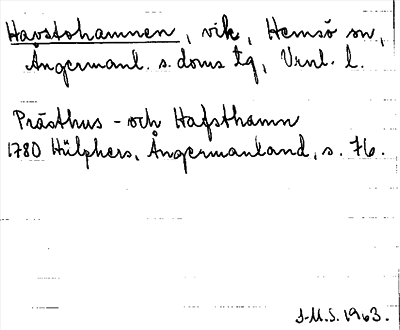 Havstohamnen, vik, Hemsö sn,
Ångermanl. s. doms tg, Vrnl. l.
Prästhus - och Hafsthamn
1780 Hülphers, Ångermanland, s. 76.
S.M.S. 1963.